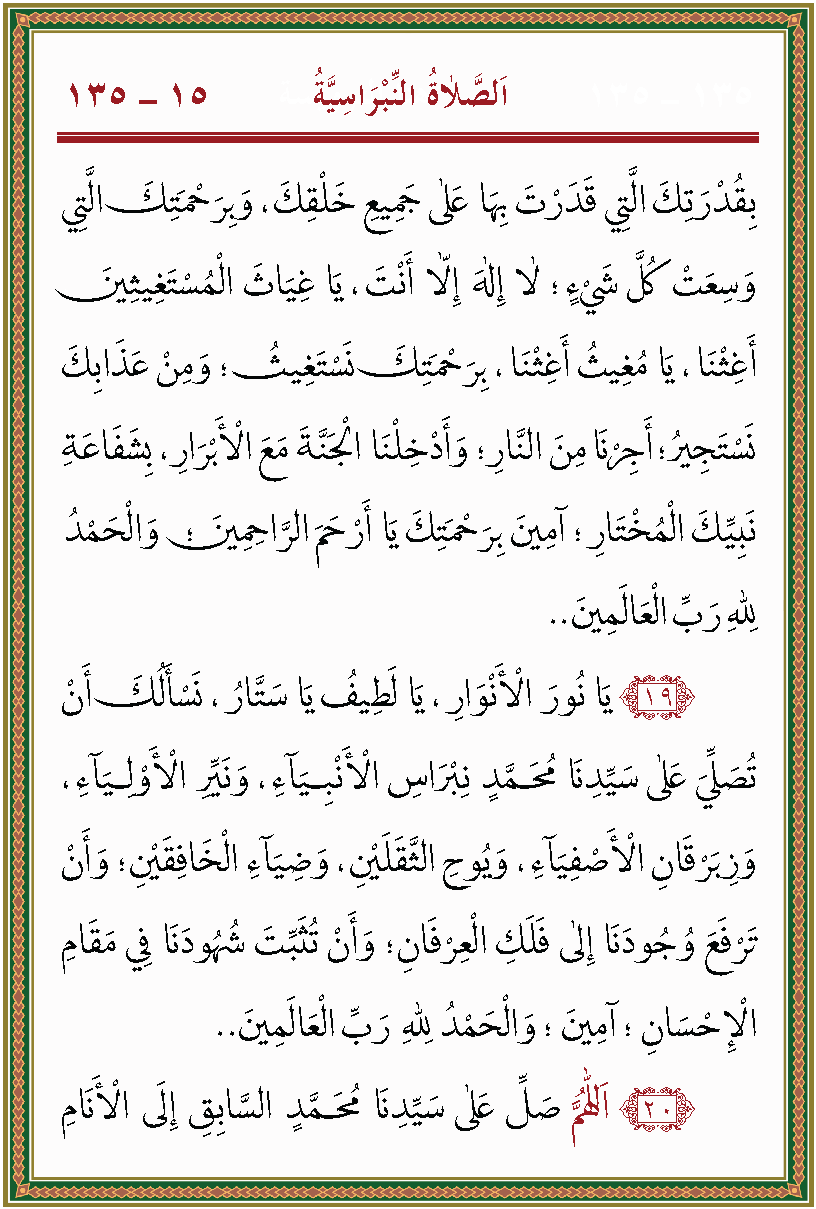 اَلصَّلَاةُ النِّبْرَاسِيَّةُ ١٥ ــ ١٣٥
بِقُدْرَتِكَ الَّتِي قَدَرْتَ بِهَا عَلَى جَمِيعِ خَلْقِكَ، وَبِرَحْمَتِكَ الَّتِي
وَسِعَتْ كُلَّ شَيْءٍ ؛ لَا إِلَٰهَ إِلَّا أَنْتَ ، يَا غِيَاثَ الْمُسْتَغِيثِينَ
أَغِثْنَا ، يَا مُغِيثُ أَغِثْنَا ، بِرَحْمَتِكَ نَسْتَغِيثُ ؛ وَمِنْ عَذَابِكَ
نَسْتَجِيرُ ؛ أَجِرْنَا مِنَ النَّارِ ؛ وَأَدْخِلْنَا الْجَنَّةَ مَعَ الْأَبْرَارِ ، بِشَفَاعَةِ
نَبِيِّكَ الْمُخْتَارِ ؛ آمِينَ بِرَحْمَتِكَ يَا أَرْحَمَ الرَّاحِمِينَ ؛ وَالْحَمْدُ
لِلهِ رَبِّ الْعَالَمِينَ..
١٩ يَا نُورَ الْأَنْوَارِ ، يَا لَطِيفُ يَا سَتَّارُ ، نَسْأَلُكَ أَنْ
تُصَلِّيَ عَلَى سَيِّدِنَا مُحَمَّدٍ نِبْرَاسِ الْأَنْبِيَآءِ ، وَنَيِّرِ الْأَوْلِيَآءِ ،
وَزِبَرْقَانِ الْأَصْفِيَآءِ ، وَيُوحِ الثَّقَلَيْنِ ، وَضِيَآءِ الْخَافِقَيْنِ ؛ وَأَنْ
تَرْفَعَ وُجُودَنَا إِلَى فَلَكِ الْعِرْفَانِ ؛ وَأَنْ تُثَبِّتَ شُهُودَنَا فِي مَقَامِ
الْإِحْسَانِ ؛ آمِينَ ؛ وَالْحَمْدُ لِلهِ رَبِّ الْعَالَمِينَ..
٢٠ اَللّٰهُمَّ صَلِّ عَلَى سَيِّدِنَا مُحَمَّدٍ السَّابِقِ إِلَى الْأَنَامِ